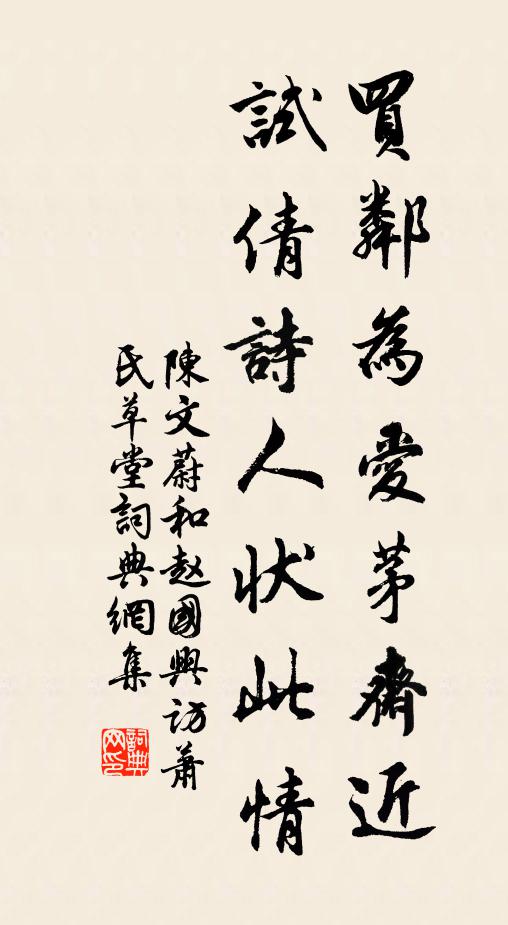 買鄰為愛茅齋近
試倩詩人状此情
陳文蔚和赵國興访蕭
氏草堂詞典網集
詞典
网印